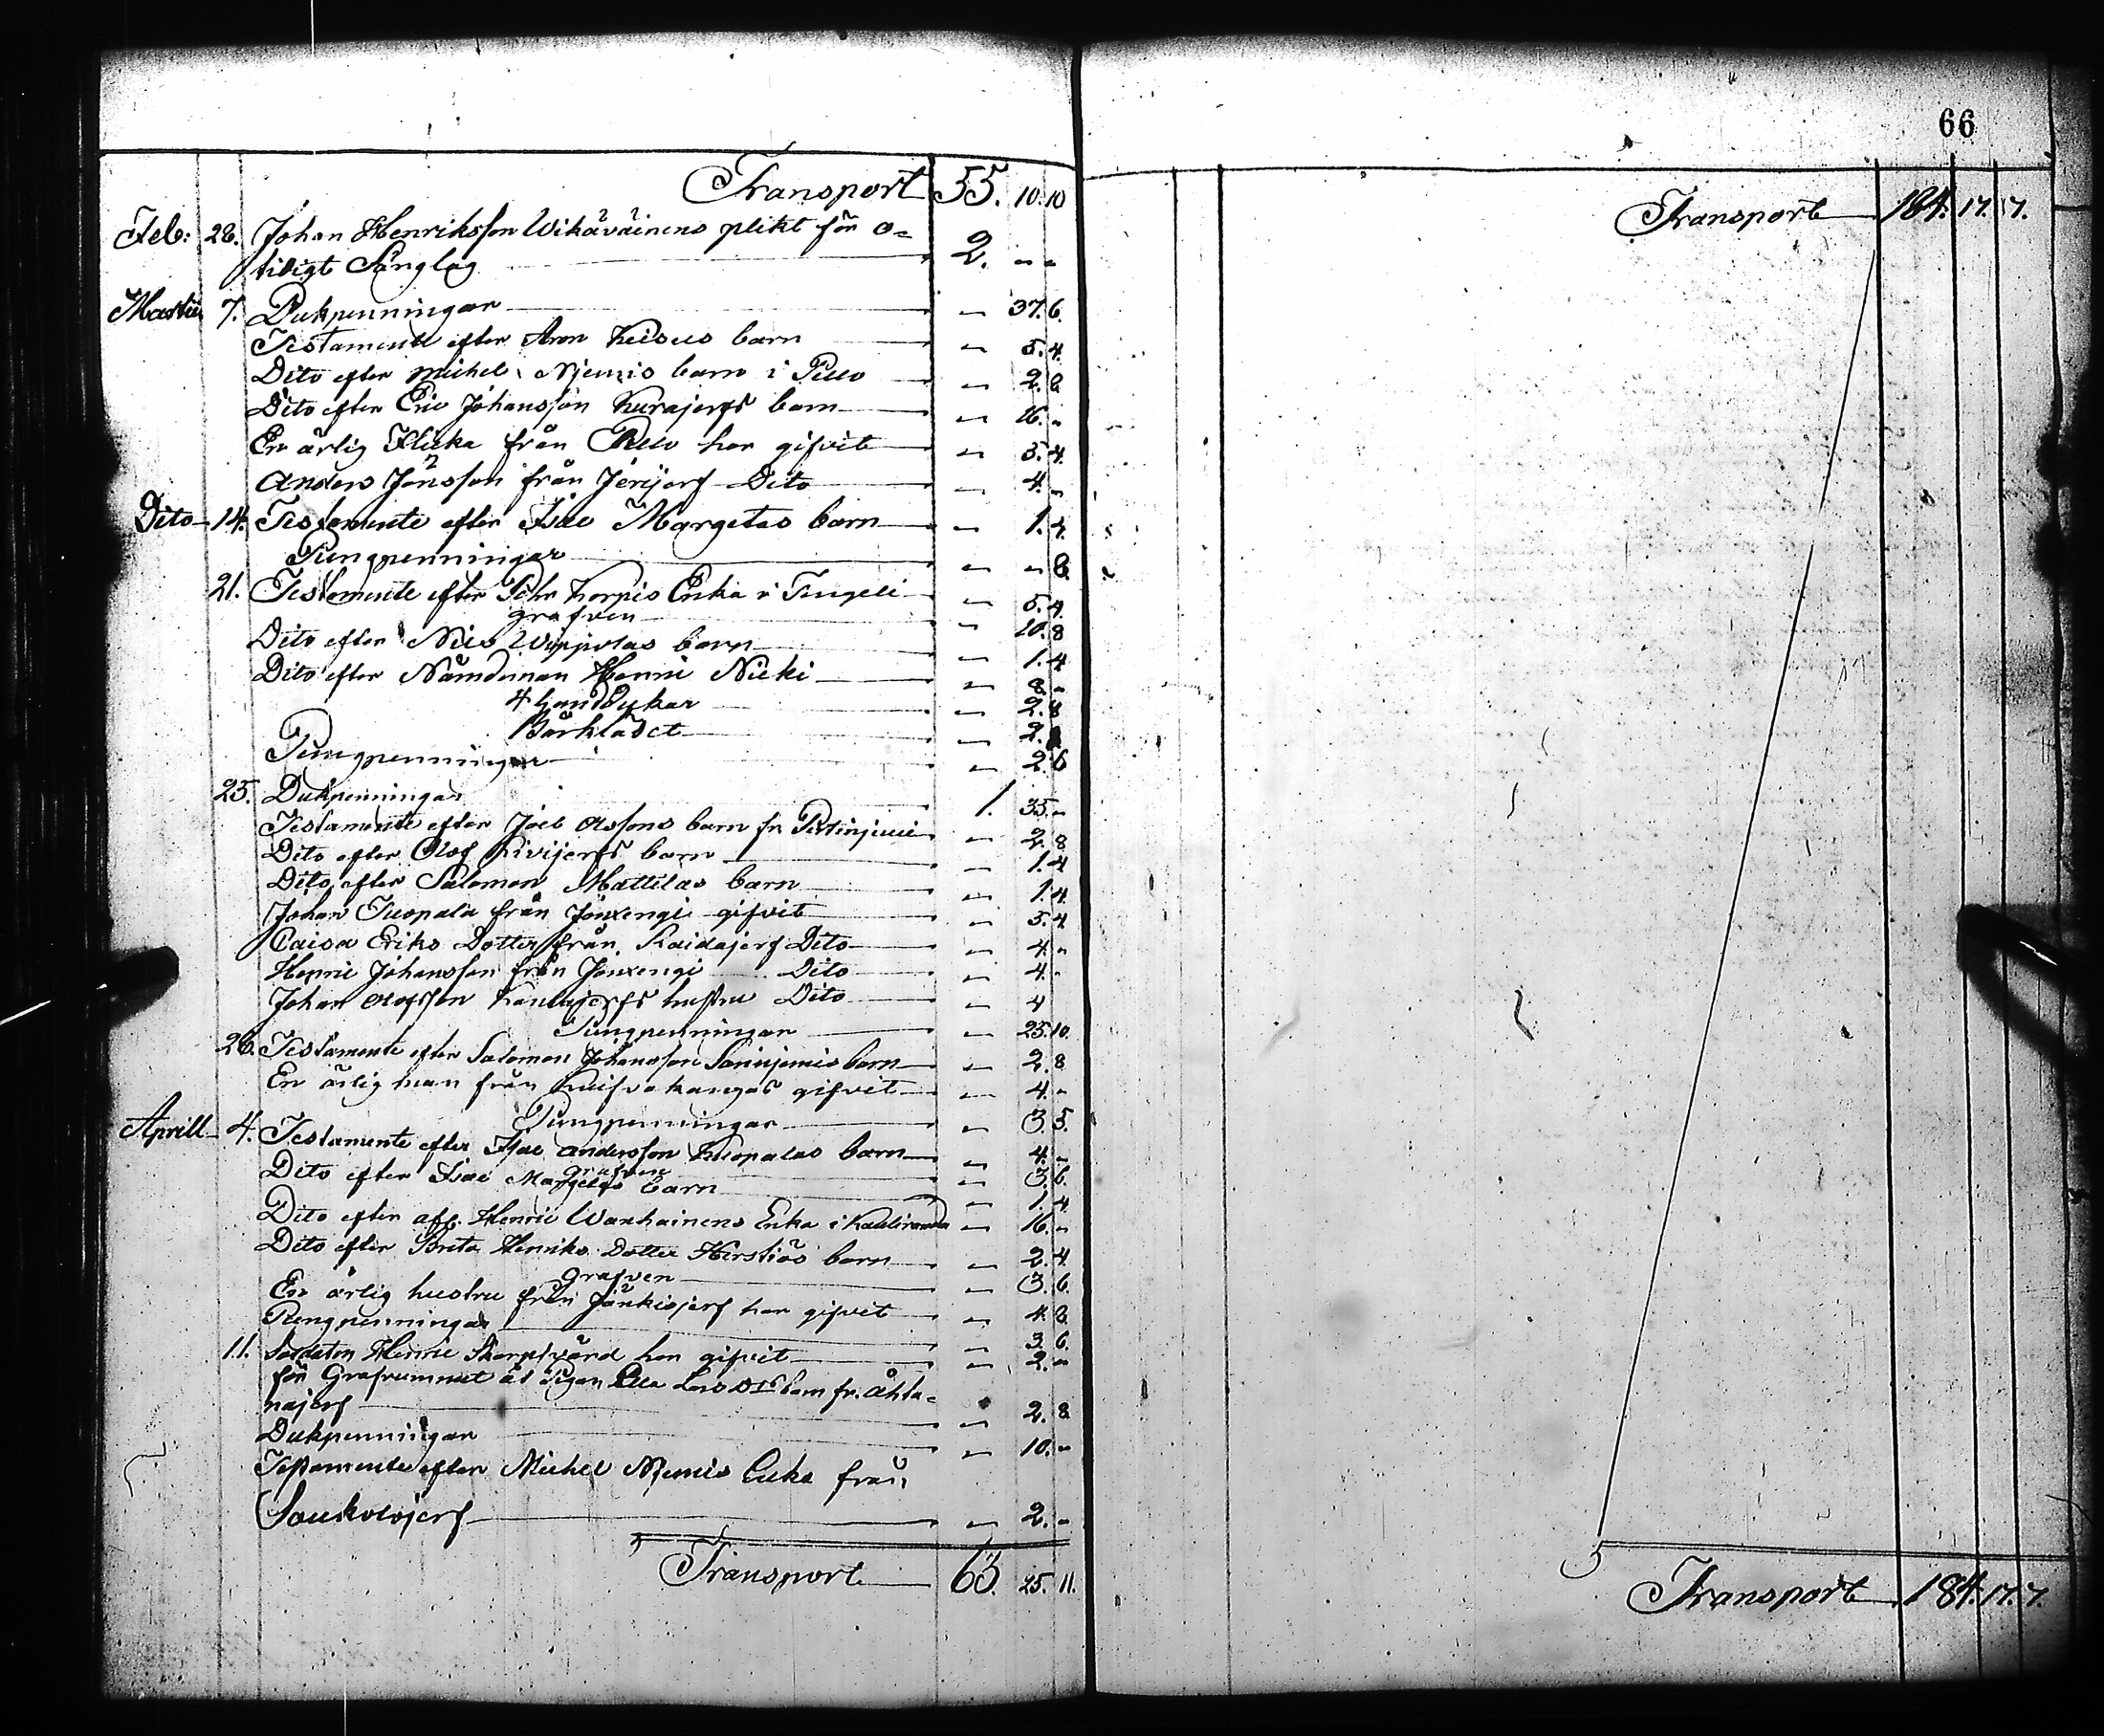 Transport 55. 10. 10
Feb: 28. Johan Henriksson Wikäväinens plikt för o=
tidigt Sänglag 2. " "
Martii 7. Dukpenningar " 37. 6.
Testamente efter Aron barn " 5. 4.
Dito efter Michel Niemis barn i Pello " 2. 8
Dito efter Eric Johansson Kurajerfs barn " 16. "
En ärlig Flicka från Pello har gifvit " 5. 4.
Anders Jönsson från Jerijerf Dito " 4. "
Dito 14. Testemente efter Isac Margetas barn " 1. 4.
Pungpenningar " " 8.
21. Testemente efter Pehr Korpis Enka i Tengeli " 5. 4.
grafven " 10. 8
Dito efter Nils Wippolas barn " 1. 4
Dito efter Nämdeman Henric Nicki " 8. "
4 handdukar " 2. 8
Bårklädet " 2.
Pungpenningar " 2. 6
25. Dukpenningar 1. 35. "
Testamente efter Joel Olssons barn fr. " 2. 8
Dito efter Olof Kivijerfs barn " 1. 4
Dito efter Salomon Mattilas barn " 1. 4.
Johan Tuopala från Jouxengi gifvit " 5. 4
Caisa Eriks Dotter från Raidajerf Dito " 4. "
Henric Johansson från Jouxengi Dito " 4. "
Johan Olofsson hustru Dito " 4
Pungpenningar " 25. 10.
26. Testamente efter Salomon Johansson barn " 2. 8
En ärlig man från Kuifvakangas gifvit " 4. "
Pungpenningar " 3. 5.
Aprill 4. Testamente efter Isac Andersson Kuopalas barn " 4. "
grafven " 3. 6.
Dito efter Isac Margetas barn " 1. 4
Dito efter afl. Henric Wanhainens Enka i Kauliranda " 16. "
Dito efter Brita Henriks Dotter Herstiös barn " 2. 4
grafven " 3. 6.
En ärlig hustru från Jänkisjerf har gifvit " 4. 8
Pungpenningar " 3. 6.
11. Soldaten Henric Skarpsvärd har gifvit " 2. "
för Grafrummet åt Pigan Ella Lars Dr barn fr. Ahla=
najerf " 2. 8
Dukpenningar " 10. "
Testamente efter Michel Niemis Enka från
Saukolojerf " 2. "
Transport 63. 25. 11.
66
Transport 184. 17. 7.
Transport 184. 17. 7.